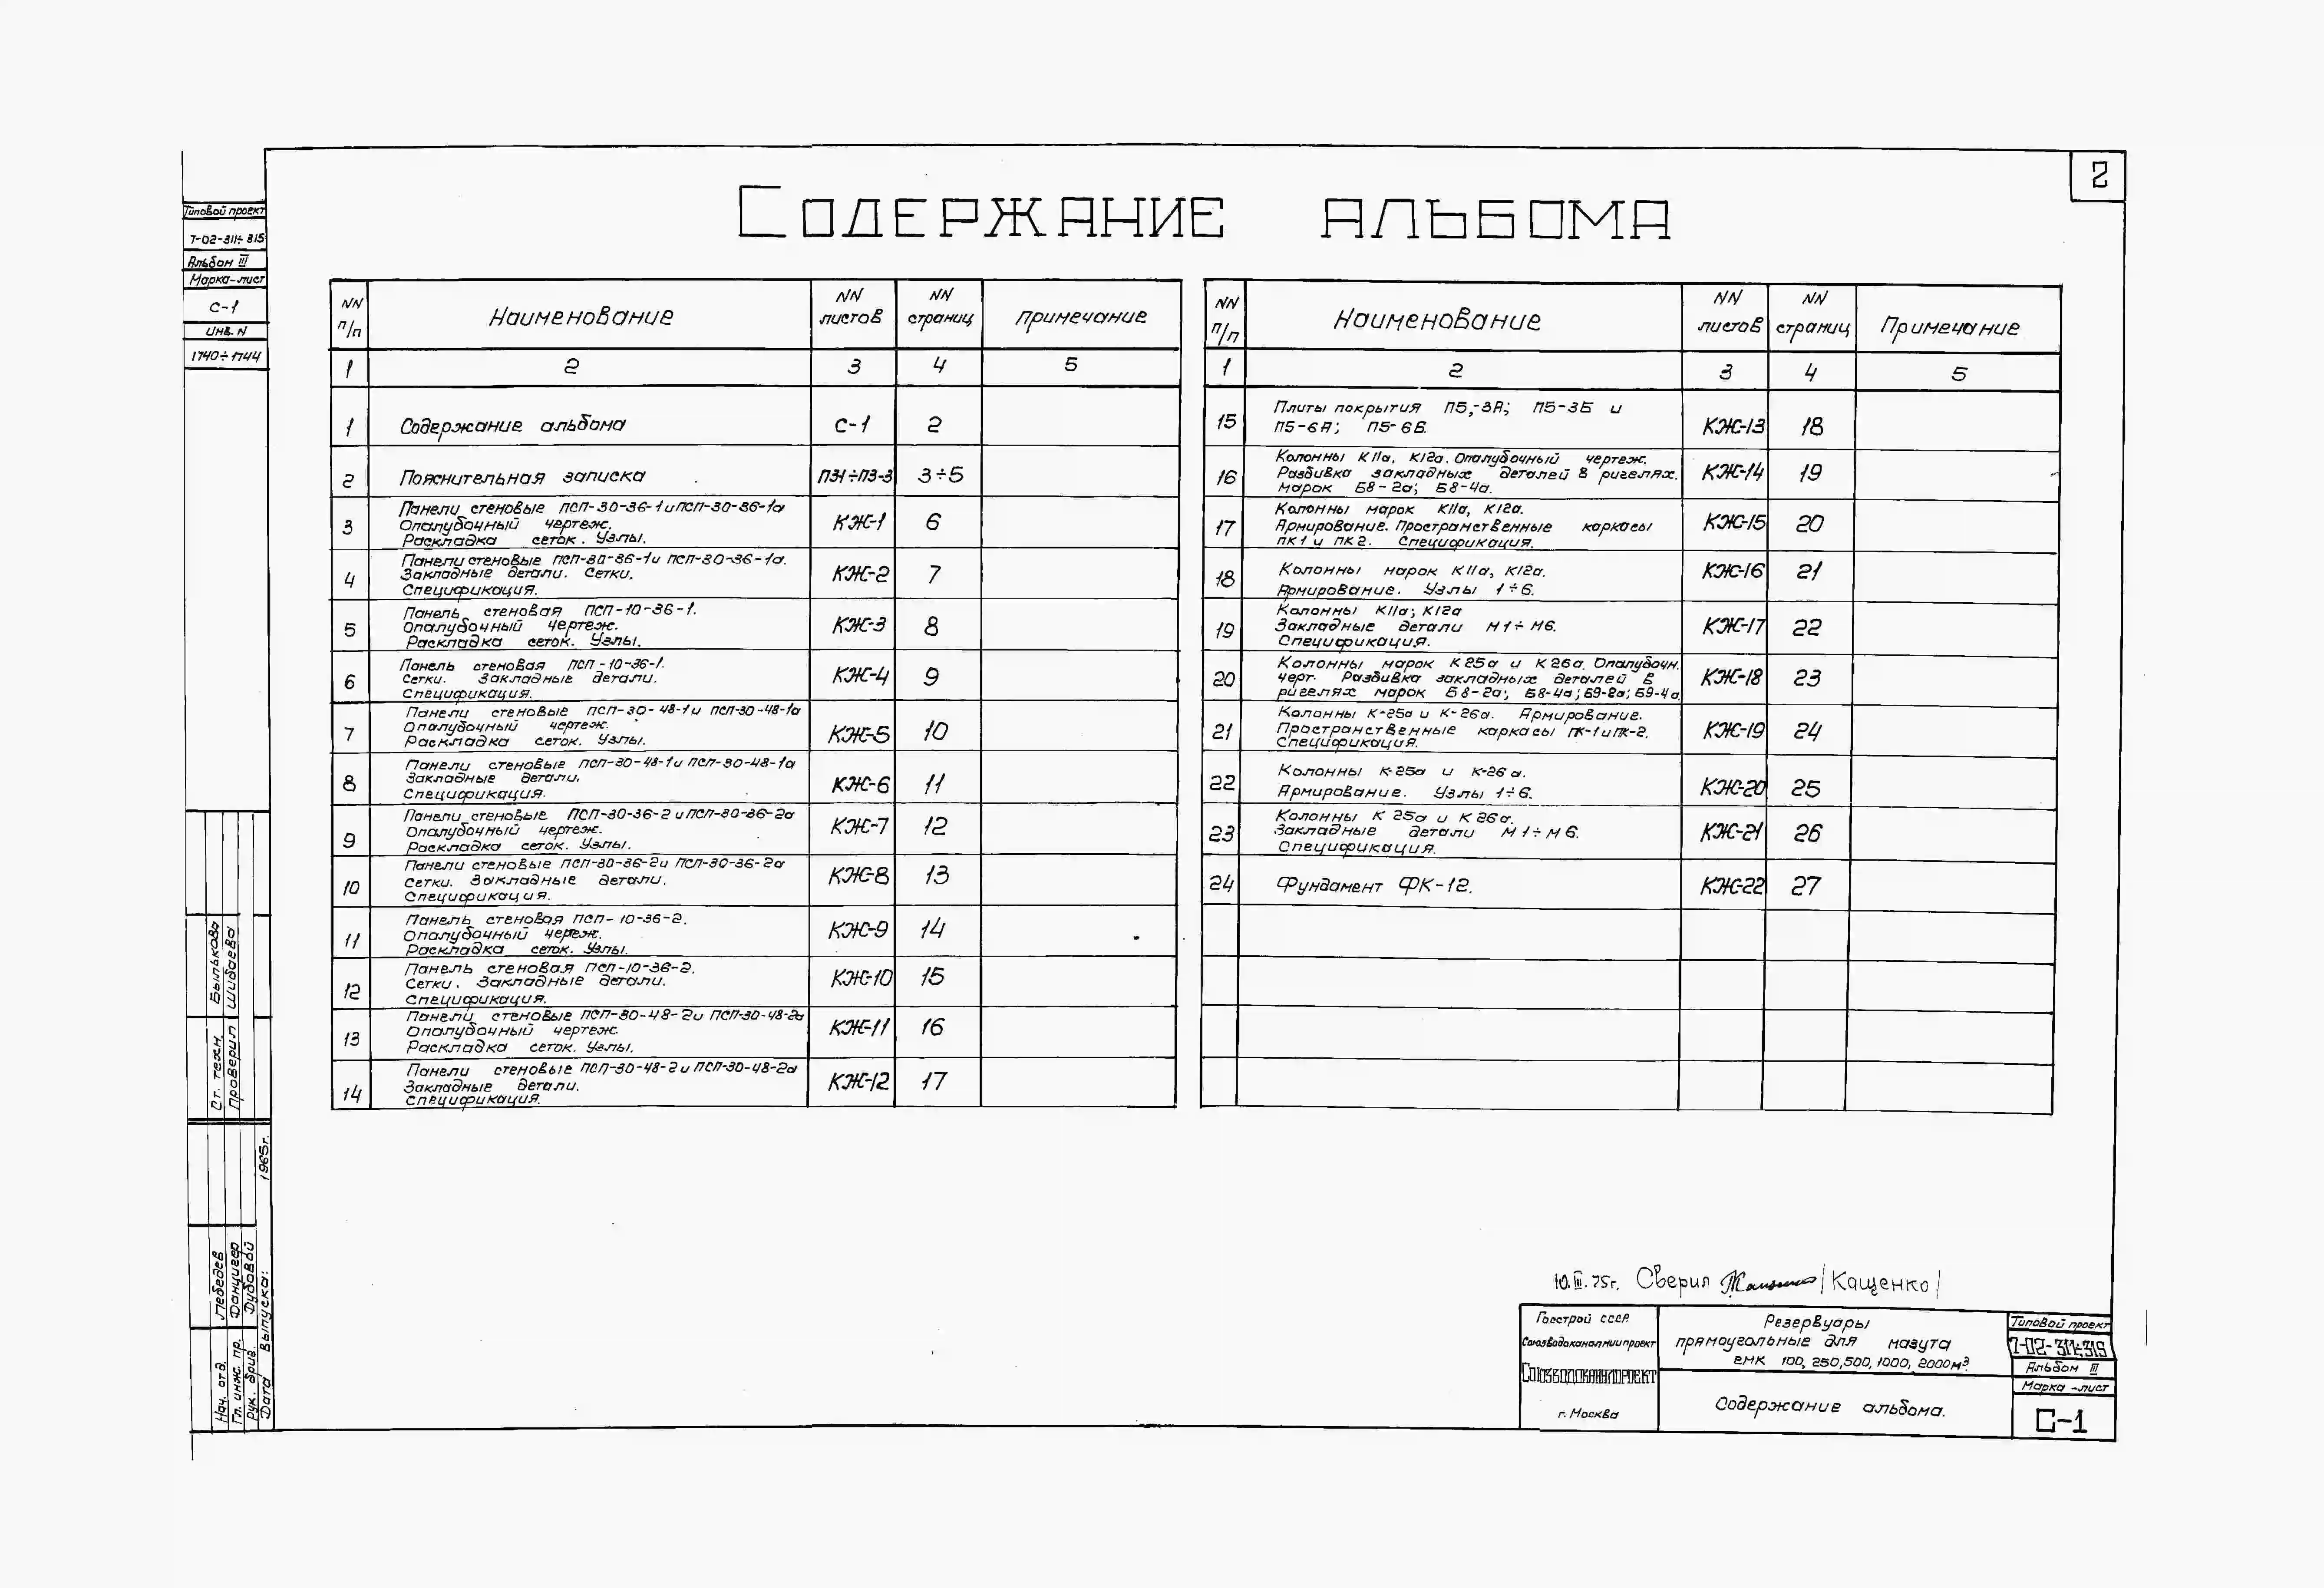 2
Содержание альбома
Типовой проект
7-02-311÷315
Альбом III
Марка-лист
С-1
Инв. N
1740÷1744
NN п/п
Наименование
NN листов
NN страниц
примечание
1 2 3 4 5
1 Содержание альбома С-1 2
2 Пояснительная записка ПЗ-1÷ПЗ-3 3÷5
3 Панели стеновые ПСП-30-36-1 и ПСП-30-36-1а
Опалубочный чертеж.
Раскладка сеток. Узлы. КЖ-1 6
4 Панели стеновые ПСП-30-36-1 и ПСП-30-36-1а.
Закладные детали. Сетки.
Спецификация. КЖ-2 7
5 Панель стеновая ПСП-10-36-1.
Опалубочный чертеж.
Раскладка сеток. Узлы. КЖ-3 8
6 Панель стеновая ПСП-10-36-1.
Сетки. Закладные детали.
Спецификация. КЖ-4 9
7 Панели стеновые ПСП-30-48-1 и ПСП-30-48-1а
Опалубочный чертеж.
Раскладка сеток. Узлы. КЖ-5 10
8 Панели стеновые ПСП-30-48-1 и ПСП-30-48-1а
Закладные детали.
Спецификация. КЖ-6 11
9 Панели стеновые ПСП-30-36-2 и ПСП-30-36-2а
Опалубочный чертеж.
Раскладка сеток. Узлы. КЖ-7 12
10 Панели стеновые ПСП-30-36-2 и ПСП-30-36-2а
Сетки. Закладные детали.
Спецификация. КЖ-8 13
11 Панель стеновая ПСП-10-36-2.
Опалубочный чертеж.
Раскладка сеток. Узлы. КЖ-9 14
12 Панель стеновая ПСП-10-36-2.
Сетки. Закладные детали.
Спецификация. КЖ-10 15
13 Панели стеновые ПСП-30-48-2 и ПСП-30-48-2а
Опалубочный чертеж.
Раскладка сеток. Узлы. КЖ-11 16
14 Панели стеновые ПСП-30-48-2 и ПСП-30-48-2а
Закладные детали.
Спецификация. КЖ-12 17
NN п/п
Наименование
NN листов
NN страниц
Примечание
1 2 3 4 5
15 Плиты покрытия П5-3А; П5-3Б и
П5-6А; П5-6Б. КЖ-13 18
16 Колонны К11а, К12а. Опалубочный чертеж.
Разбивка закладных деталей в ригелях.
марок Б8-2а; Б8-4а. КЖ-14 19
17 Колонны марок К11а, К12а.
Армирование. Пространственные каркасы
ПК1 и ПК2. Спецификация. КЖ-15 20
18 Колонны марок К11а, К12а.
Армирование. Узлы 1÷6. КЖ-16 21
19 Колонны К11а; К12а
Закладные детали М1÷М6.
Спецификация. КЖ-17 22
20 Колонны марок К25а и К26а. Опалубочн.
черт. Разбивка закладных деталей в
ригелях марок Б8-2а; Б8-4а; Б9-2а; Б9-4а КЖ-18 23
21 Колонны К-25а и К-26а. Армирование.
Пространственные каркасы ПК-1 и ПК-2.
Спецификация. КЖ-19 24
22 Колонны К-25а и К-26а.
Армирование. Узлы 1÷6. КЖ-20 25
23 Колонны К25а и К26а.
Закладные детали М1÷М6.
Спецификация. КЖ-21 26
24 Фундамент ФК-12. КЖ-22 27
Ст. техн. Былькова
Проверил Шибаева
Нач. отд. Лебедев
Гл. инж. пр. Данцигер
Рук. бриг. Дубовой
Дата выпуска: 1965г.
10.III.75г. Сверил /Кащенко/
Госстрой СССР
Союзводоканалниипроект
Союзводоканалпроект
г. Москва
Резервуары
прямоугольные для мазута
емк 100, 250, 500, 1000, 2000м³
Содержание альбома.
Типовой проект
7-02-311÷315
Альбом III
Марка-лист
С-1